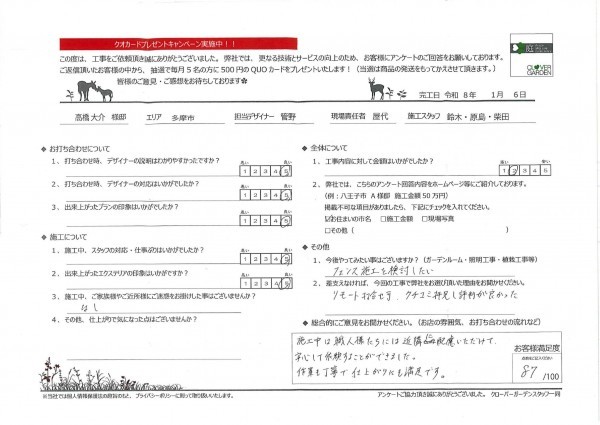 クオカードプレゼントキャンペーン実施中！！
この度は、工事をご依頼頂き誠にありがとうございました。弊社では、更なる技術とサービスの向上のため、お客様にアンケートのご回答をお願いしております。
ご返信頂いたお客様の中から、抽選で毎月5名の方に500円のQUOカードをプレゼントいたします！（当選は商品の発送をもってかえさせて頂きます）
皆様のご意見・ご感想をお待ちしております
CLOVER GARDEN
完工日 令和 8年 1月 6日
高橋大介 様邸 エリア 多摩市 担当デザイナー 菅野 現場責任者 屋代 施工スタッフ 鈴木・原島・柴田
◆ お打ち合わせについて
1．打ち合わせ時、デザイナーの説明はわかりやすかったですか？
悪い 良い
1 2 3 4 5
2．打ち合わせ時、デザイナーの対応はいかがでしたか？
悪い 良い
1 2 3 4 5
3．出来上がったプランの印象はいかがですか？
悪い 良い
1 2 3 4 5
◆ 施工について
1．施工中、スタッフの対応・仕事ぶりはいかがでしたか？
悪い 良い
1 2 3 4 5
2．出来上がったエクステリアの印象はいかがですか？
悪い 良い
1 2 3 4 5
3．施工中、ご家族様やご近所様にご迷惑をお掛けした事はございませんか？
なし
4．その他、仕上がりで気になった点はございませんか？
◆ 全体について
1．工事内容に対して金額はいかがでしたか？
高い 安い
1 2 3 4 5
2．弊社では、こちらのアンケート回答内容をホームページ等にご紹介しております。
（例：八王子市 A様邸 施工金額50万円）
掲載不可な項目がありましたら、下記にチェックを入れてください。
☑お住まいの市名 □施工金額 □現場写真
□その他（ ）
◆ その他
1．今後やってみたい事はございますか？（ガーデンルーム・照明工事・植栽工事等）
フェンス施工を検討したい
2．差支えなければ、今回の工事で弊社をお選び頂いた理由をお聞かせください。
リモートお打合せ可、クチコミ拝見し評判が良かった
◆ 総合的にご意見をお聞かせください。（お店の雰囲気、お打ち合わせの流れなど）
施工中は職人様たちには近隣配慮いただけて、
安心して依頼することができました。
作業も丁寧で仕上がりにも満足です。
お客様満足度
点数をご記入ください
87 /100
※当社では個人情報保護法の趣旨のもと、プライバシーポリシーに則って取り扱いいたします。
アンケートご協力頂き誠にありがとうございました。 クローバーガーデンスタッフ一同